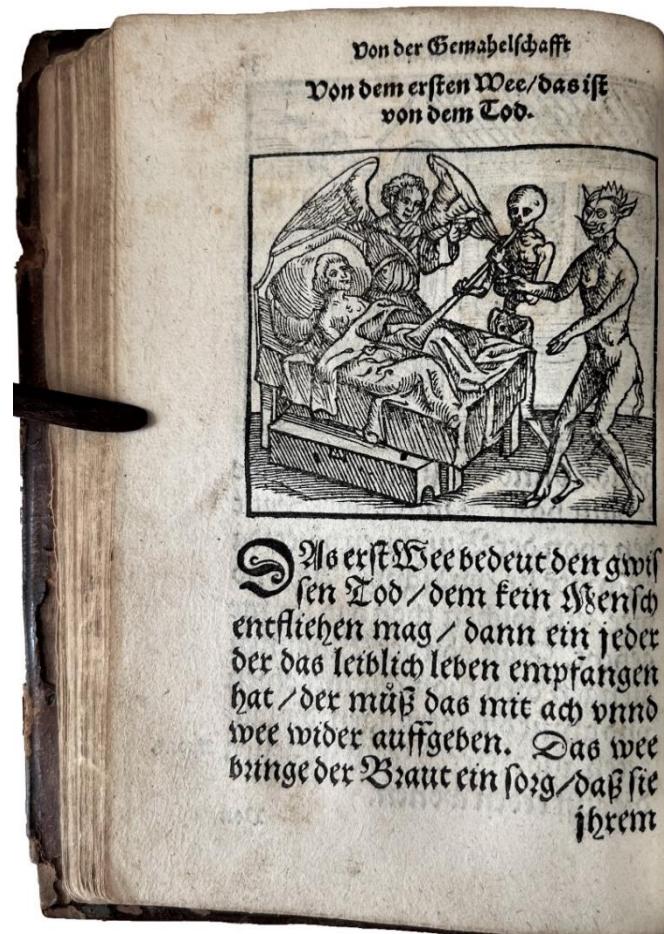 Von der Gemahelschafft
Von dem ersten Wee/das ist
von dem Tod.
DAs erst Wee bedeut den gwis
sen Tod/dem kein Mensch
entfliehen mag/dann ein jeder
der das leiblich leben empfangen
hat/der můß das mit ach vnnd
wee wider auffgeben. Das wee
bringe der Braut ein sorg/daß sie
jhrem